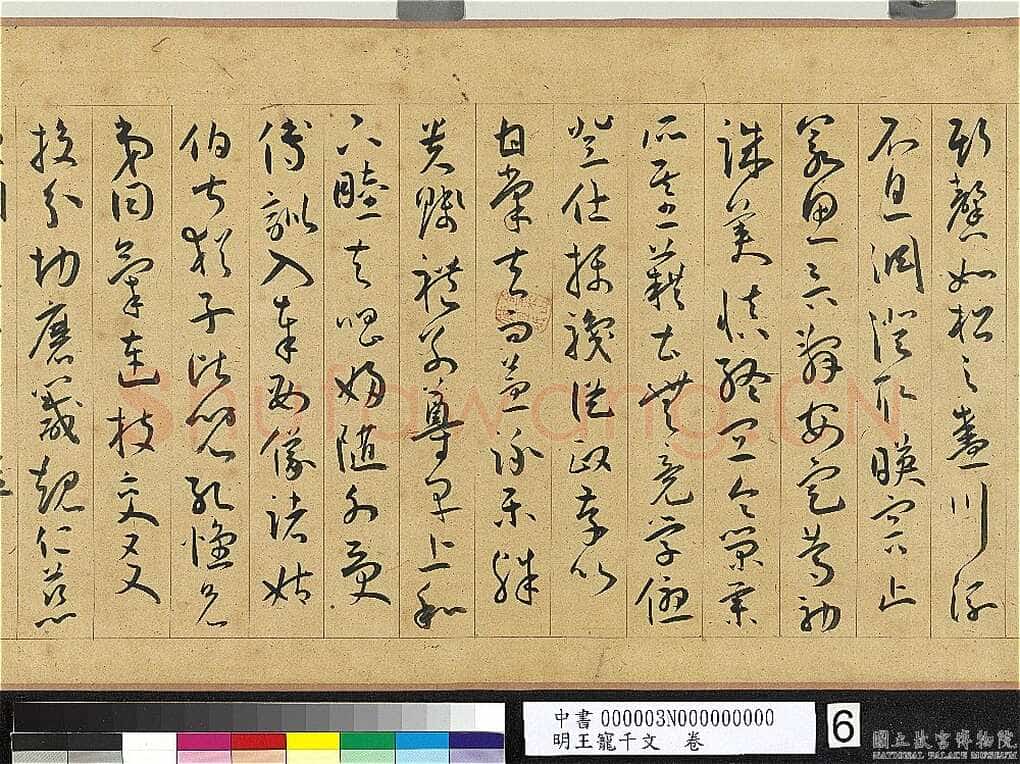 斯馨如松之盛川流
不息淵澄取暎容止
若思言辭安定篤初
誠美慎終宜令榮業
所基藉甚無竟學優
登仕攝職從政存以
甘棠去而益詠樂殊
貴賤禮別尊卑上和
下睦夫唱婦隨外受
傅訓入奉母儀諸姑
伯叔猶子比兒孔懷兄
弟同氣連枝交友
投分切磨箴規仁慈
shufawang.CN
中書 000003N000000000
明王寵千文 卷
6
國立故宮博物院
NATIONAL PALACE MUSEUM